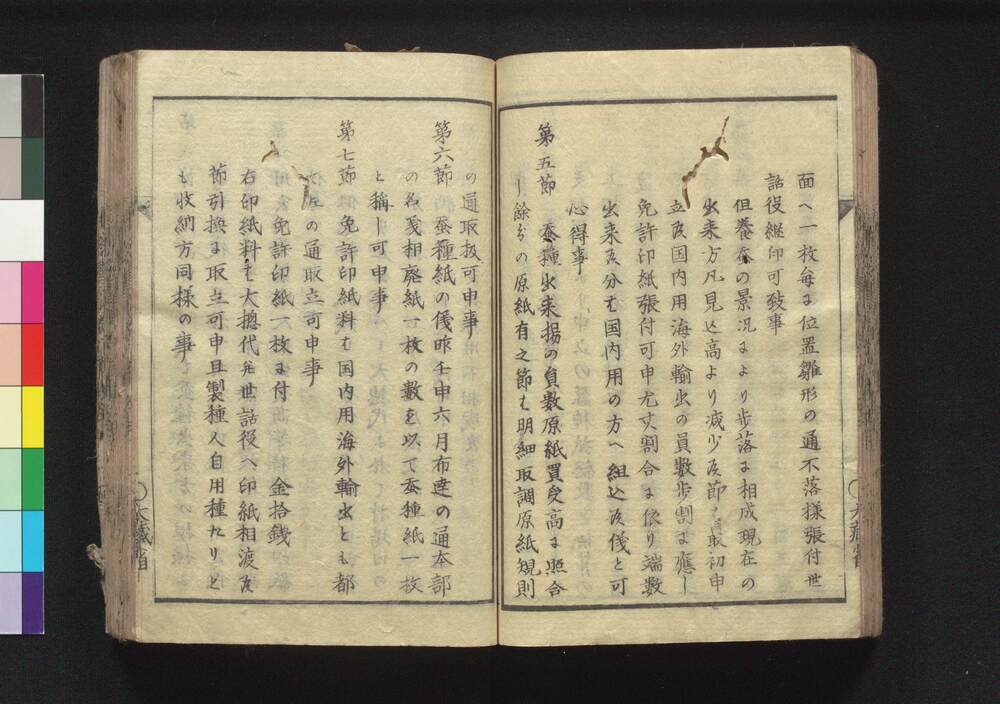 面へ一枚毎ニ位置雛形の通不落様張付世
話役継印可致事
但養蚕の景況により歩落ニ相成現在の
出来方凡見込高より減少候節ハ最初申
立候国内用海外輸出の員数歩割ニ應し
免許印紙張付可申尤割合ニ依り端数
出来候分ハ国内用の方へ組込候儀と可
心得事
第五節 蚕種出来揚の員数原紙買受高ニ照合
し餘分の原紙有之節ハ明細取調原紙規則
の通取扱可申事
第六節 蚕種紙の儀昨壬申六月布達の通本部
の名義相廃紙一枚の数を以て蚕種紙一枚
と稱し可申事
第七節 免許印紙料ハ国内用海外輸出とも都
左の通取立可申事
免許印紙一枚ニ付 金拾銭
右印紙料ハ大摠代世話役へ印紙相渡候
節引換ニ取立可申且製種人自用種たりと
も収納方同様の事
大蔵省
大蔵省